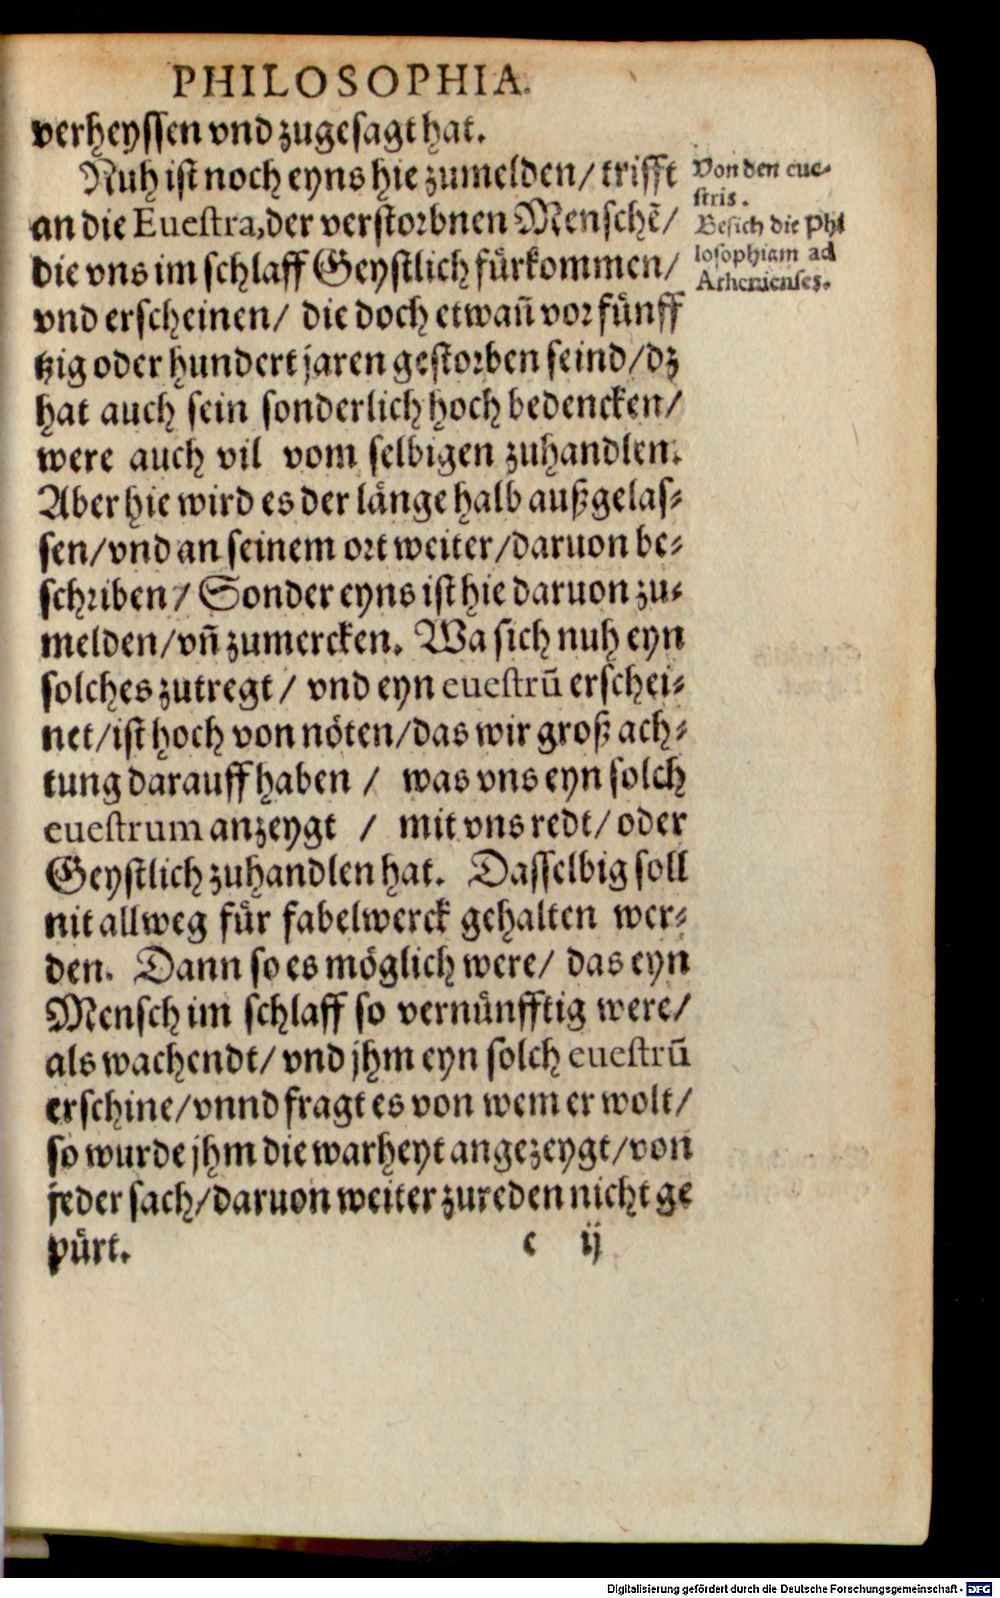 PHILOSOPHIA.
verheyssen vnd zugesagt hat.
Nuh ist noch eyns hie zumelden/ trifft
an die Euestra, der verstorbnen Menschē/
die vns im schlaff Geystlich fürkommen/
vnd erscheinen/ die doch etwañ vor fünff
tzig oder hundert jaren gestorben seind/dz
hat auch sein sonderlich hoch bedencken/
were auch vil vom selbigen zuhandlen.
Aber hie wird es der länge halb außgelas-
sen/vnd an seinem ort weiter/daruon be-
schriben/ Sonder eyns ist hie daruon zu-
melden/vñ zumercken. Wa sich nuh eyn
solches zutregt/ vnd eyn euestrū erschei-
net/ist hoch von nöten/das wir groß ach-
tung darauff haben / was vns eyn solch
euestrum anzeygt / mit vns redt/ oder
Geystlich zuhandlen hat. Dasselbig soll
nit allweg für fabelwerck gehalten wer-
den. Dann so es möglich were/ das eyn
Mensch im schlaff so vernünfftig were/
als wachendt/ vnd jhm eyn solch euestrū
erschine/vnnd fragt es von wem er wolt/
so wurde jhm die warheyt angezeygt/von
jeder sach/daruon weiter zureden nicht ge
pürt.
c ij
Von den eue-
stris.
Besich die Phi
losophiam ad
Athenienses.
Digitalisierung gefördert durch die Deutsche Forschungsgemeinschaft - DFG